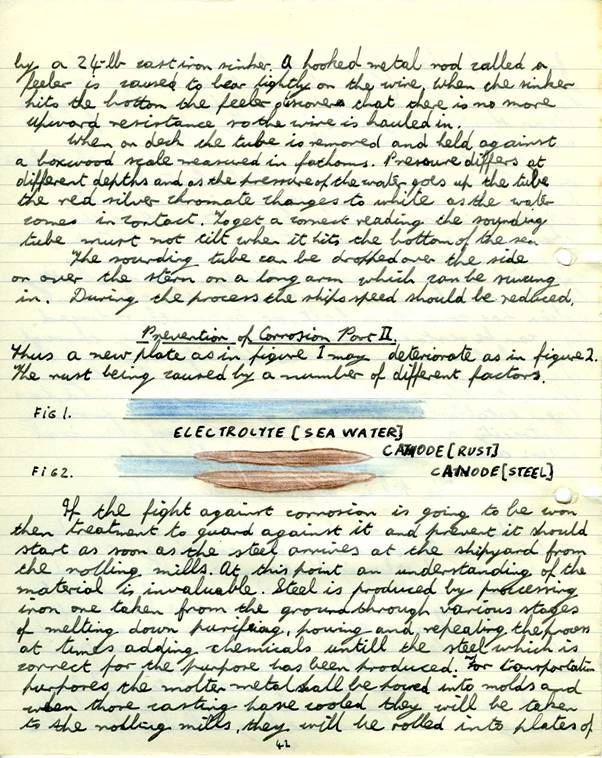 by a 24-lb cast iron sinker. A hooked metal rod called a
feeler is caused to bear lightly on the wire. When the sinker
hits the bottom the feeler discovers that there is no more
upward resistance so the wire is hauled in.
When on deck the tube is removed and held against
a boxwood scale measured in fathoms. Pressure differs at
different depths and as the pressure of the water goes up the tube
the red silver chromate changes to white as the water
comes in contact. To get a correct reading the sounding
tube must not tilt when it hits the bottom of the sea
The sounding tube can be dropped over the side
or over the stern on a long arm which can be swung
in. During the process the ships speed should be reduced.
Prevention of Corrosion Part II
Thus a new plate as in figure I may deteriorate as in figure 2.
The rust being caused by a number of different factors.
FIG 1.
ELECTROLYTE [SEA WATER]
CATHODE [RUST]
FIG 2.
ANODE [STEEL]
If the fight against corrosion is going to be won
then treatment to guard against it and prevent it should
start as soon as the steel arrives at the shipyard from
the rolling mills. At this point an understanding of the
material is invaluable. Steel is produced by processing
iron ore taken from the ground through various stages
of melting down purifing, pouring and repeating the process
at times adding chemicals untill the steel which is
correct for the purpose has been produced. For transportation
purposes the molten metal shall be poured into molds and
when those casting have cooled they will be taken
to the rolling mills, they will be rolled into plates of
42